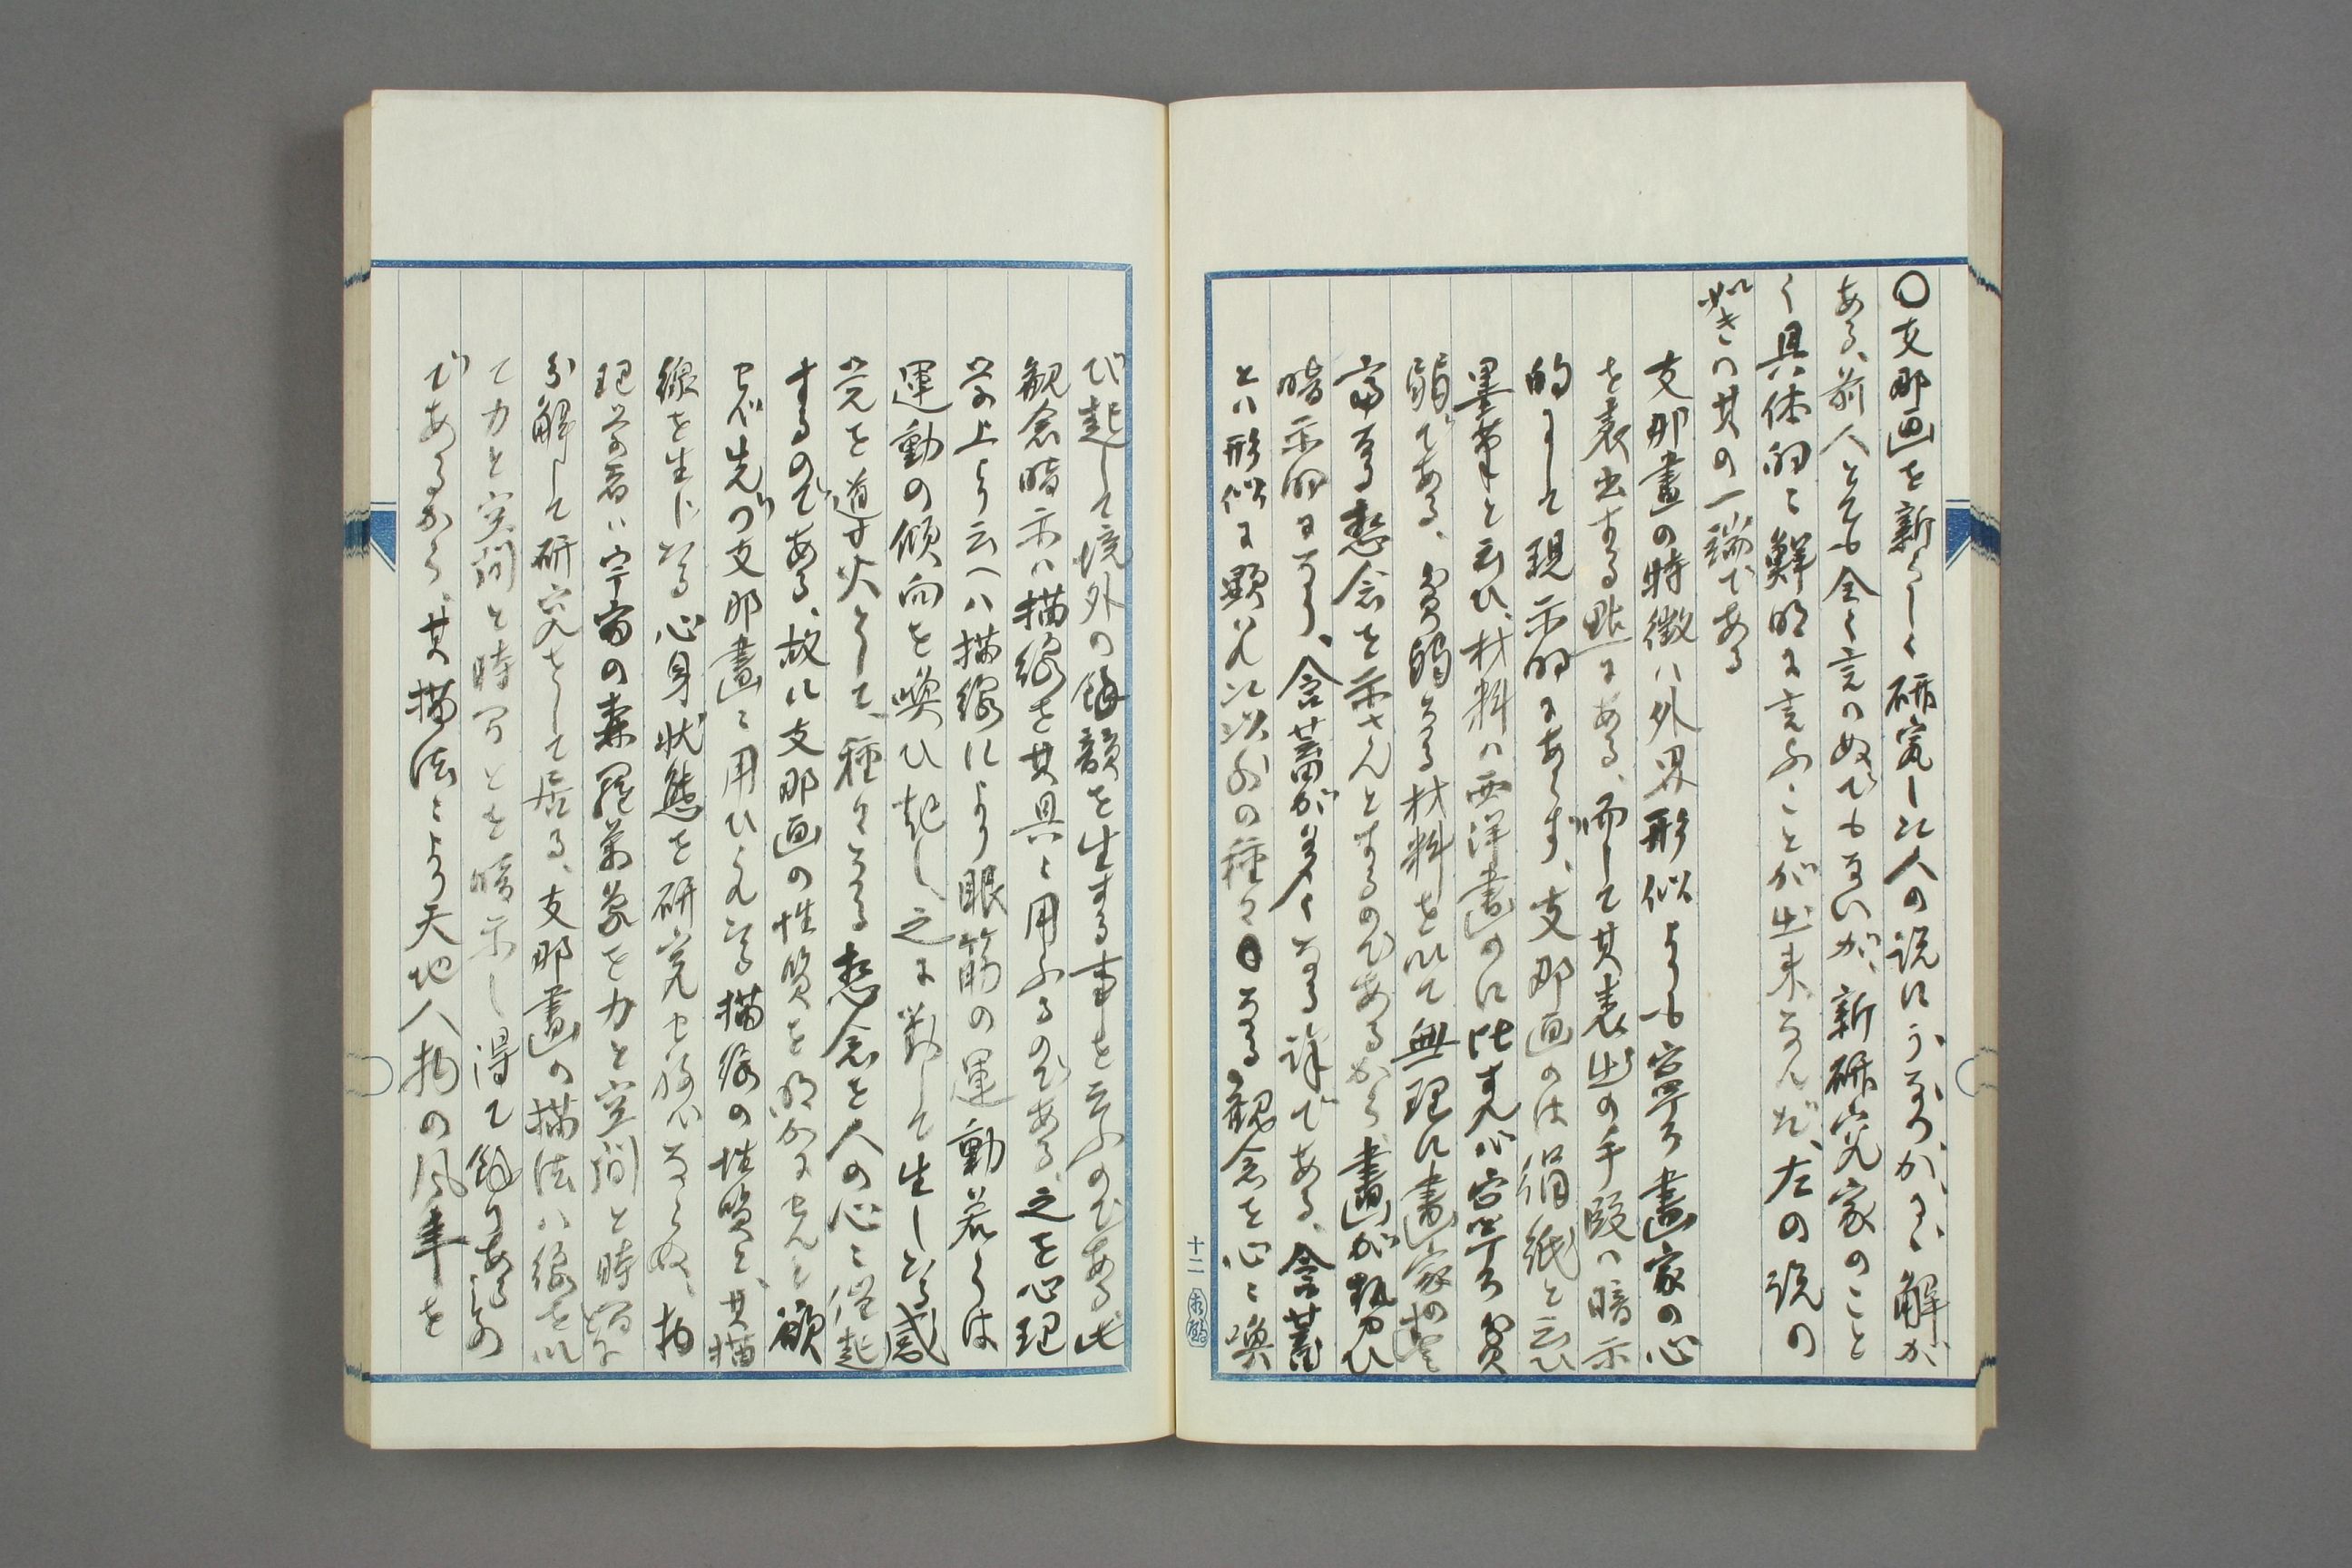 〇支那画を新らしく研究した人の説にうなづかるゝ解が
ある、前人とても全く言はぬでもないが、新研究家のこと
く具体的に鮮明に言ふことが出来なんだ、左の説の
如きは其の一端である
支那畫の特徴ハ外界形似よりも寧ろ畫家の心
を表出する點にある、而して其表出の手段ハ暗示
的にして現示的にあらず、支那画のは絹紙と云ひ
墨筆と云ひ、材料ハ西洋畫のに比すれバ寧ろ貧
弱である、貧弱なる材料を以て無理に畫家の
富なる想念を示さんとするのであるから、畫が勢ひ
暗示的になり、含蓄が多くなる訳である、含蓄
とハ形似に顕れた以外の種々なる観念を心に喚
び起して境外の餘韻を生する事を云ふのである、此
観念暗示ハ描線を其具に用ふるのである、之を心理
学上より云へハ描線により眼筋の運動若くは
運動の傾向を喚ひ起し、之に對して生したる感
覚を導火として、種々なる想念を人の心に催起
するのである、故に支那画の性質を明かにせんと欲
せバ先づ支那畫に用ひられたる描線の性質と、其描
線を生じたる心身状態を研究せねバならぬ、物
理学者ハ宇宙の森羅萬象を力と空間と時間に
分解して研究をして居る、支那畫の描法ハ線を以
て力と空間と時間とを暗示し得て餘りあるもの
であるから、其描法により天地人物の風事を
十二